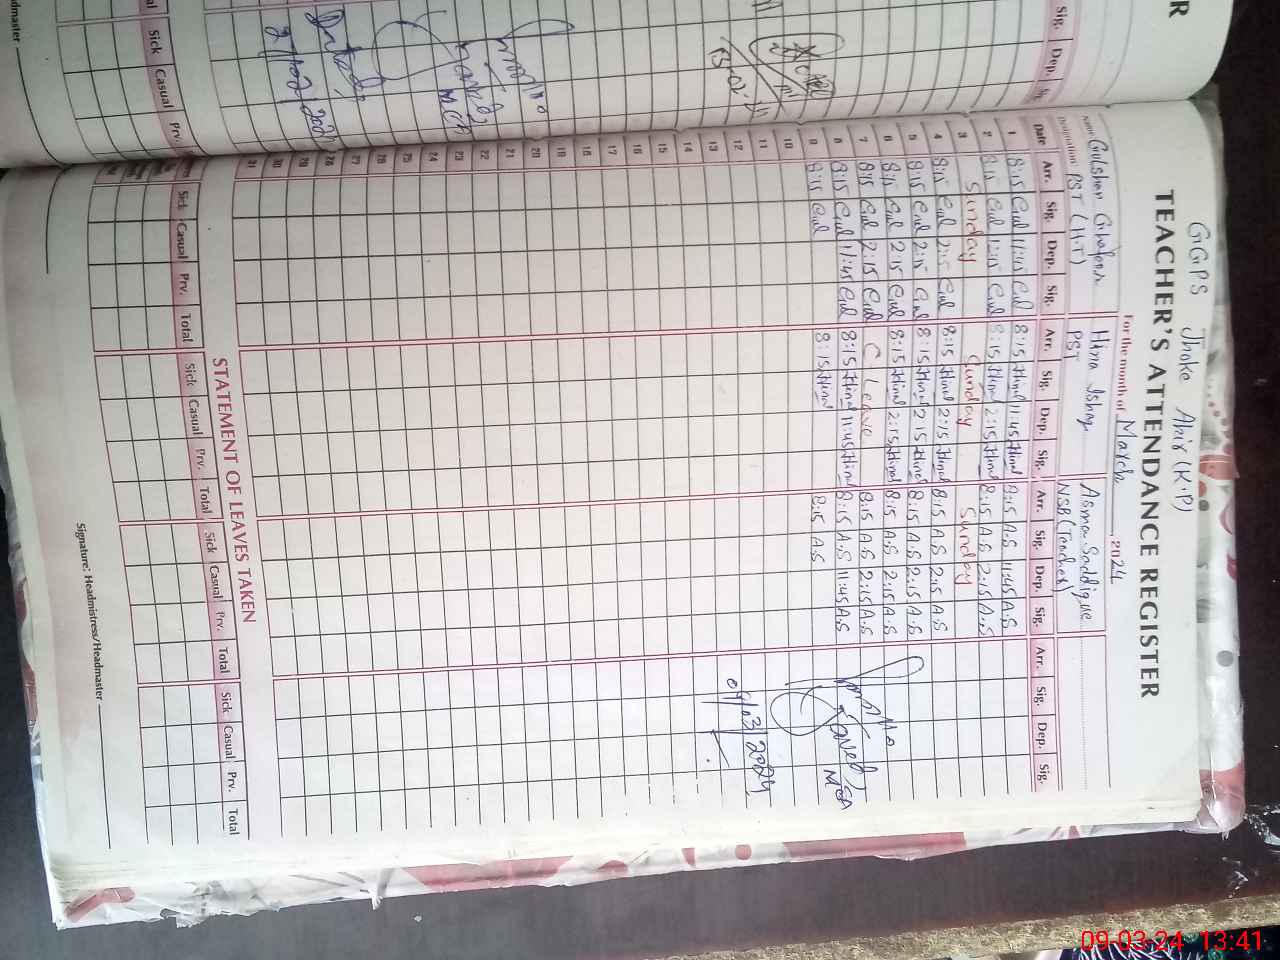 GGPS Jhoke Abir (K.P)
TEACHER'S ATTENDANCE REGISTER
For the month of March 2024
Name Gulshan Ghafoor Hina Ishaq Asma Saddique
Designation PST (H.T) PST NSB (Teacher)
Date Arr. Sig. Dep. Sig. Arr. Sig. Dep. Sig. Arr. Sig. Dep. Sig. Arr. Sig. Dep. Sig.
1 8:15 Gul 11:45 Gul 8:15 Hina 11:45 Hina 8:15 A.S 11:45 A.S
2 8:15 Gul 12:15 Gul 8:15 Hina 2:15 Hina 8:15 A.S 2:15 A.S
3 Sunday Sunday Sunday
4 8:15 Gul 2:15 Gul 8:15 Hina 2:15 Hina 8:15 A.S 2:15 A.S
5 8:15 Gul 2:15 Gul 8:15 Hina 2:15 Hina 8:15 A.S 2:15 A.S
6 8:15 Gul 2:15 Gul 8:15 Hina 2:15 Hina 8:15 A.S 2:15 A.S
7 8:15 Gul 2:15 Gul C Leave 8:15 A.S 2:15 A.S
8 8:15 Gul 11:45 Gul 8:15 Hina 11:45 Hina 8:15 A.S 11:45 A.S
9 8:15 Gul 8:15 Hina 8:15 A.S
MEA
10
11
12
09/03/2024
13
14
15
16
17
18
19
20
21
22
23
24
25
26
27
28
29
30
31
STATEMENT OF LEAVES TAKEN
Sick Casual Prv. Total Sick Casual Prv. Total Sick Casual Prv. Total Sick Casual Prv. Total
Signature: Headmistress/Headmaster
R
Sig. Dep.
Sick Casual Prv.
09-03-24 13:41